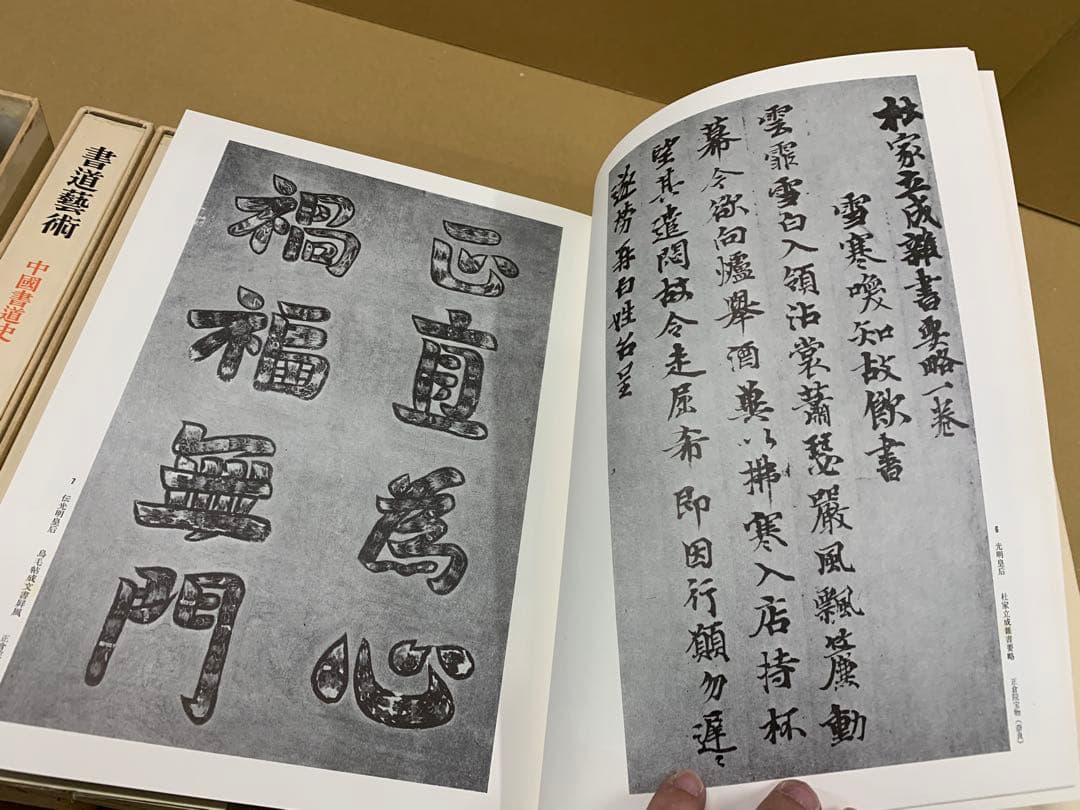 杜家立成雜書要略一卷
雪寒喚知故飲書
雲霏雪白入領沾裳蕭瑟嚴風飄簾動
幕今欲向爐舉酒冀以拂寒入店持杯
望其遣悶故令走屈希即因行願勿遲〻
遂勞再白姓名呈
6 光明皇后 杜家立成雜書要略 正倉院宝物(奈良)
正直為心
禍福無門
7 伝光明皇后 鳥毛帖成文書屏風 正倉
書道藝術 中國書道史